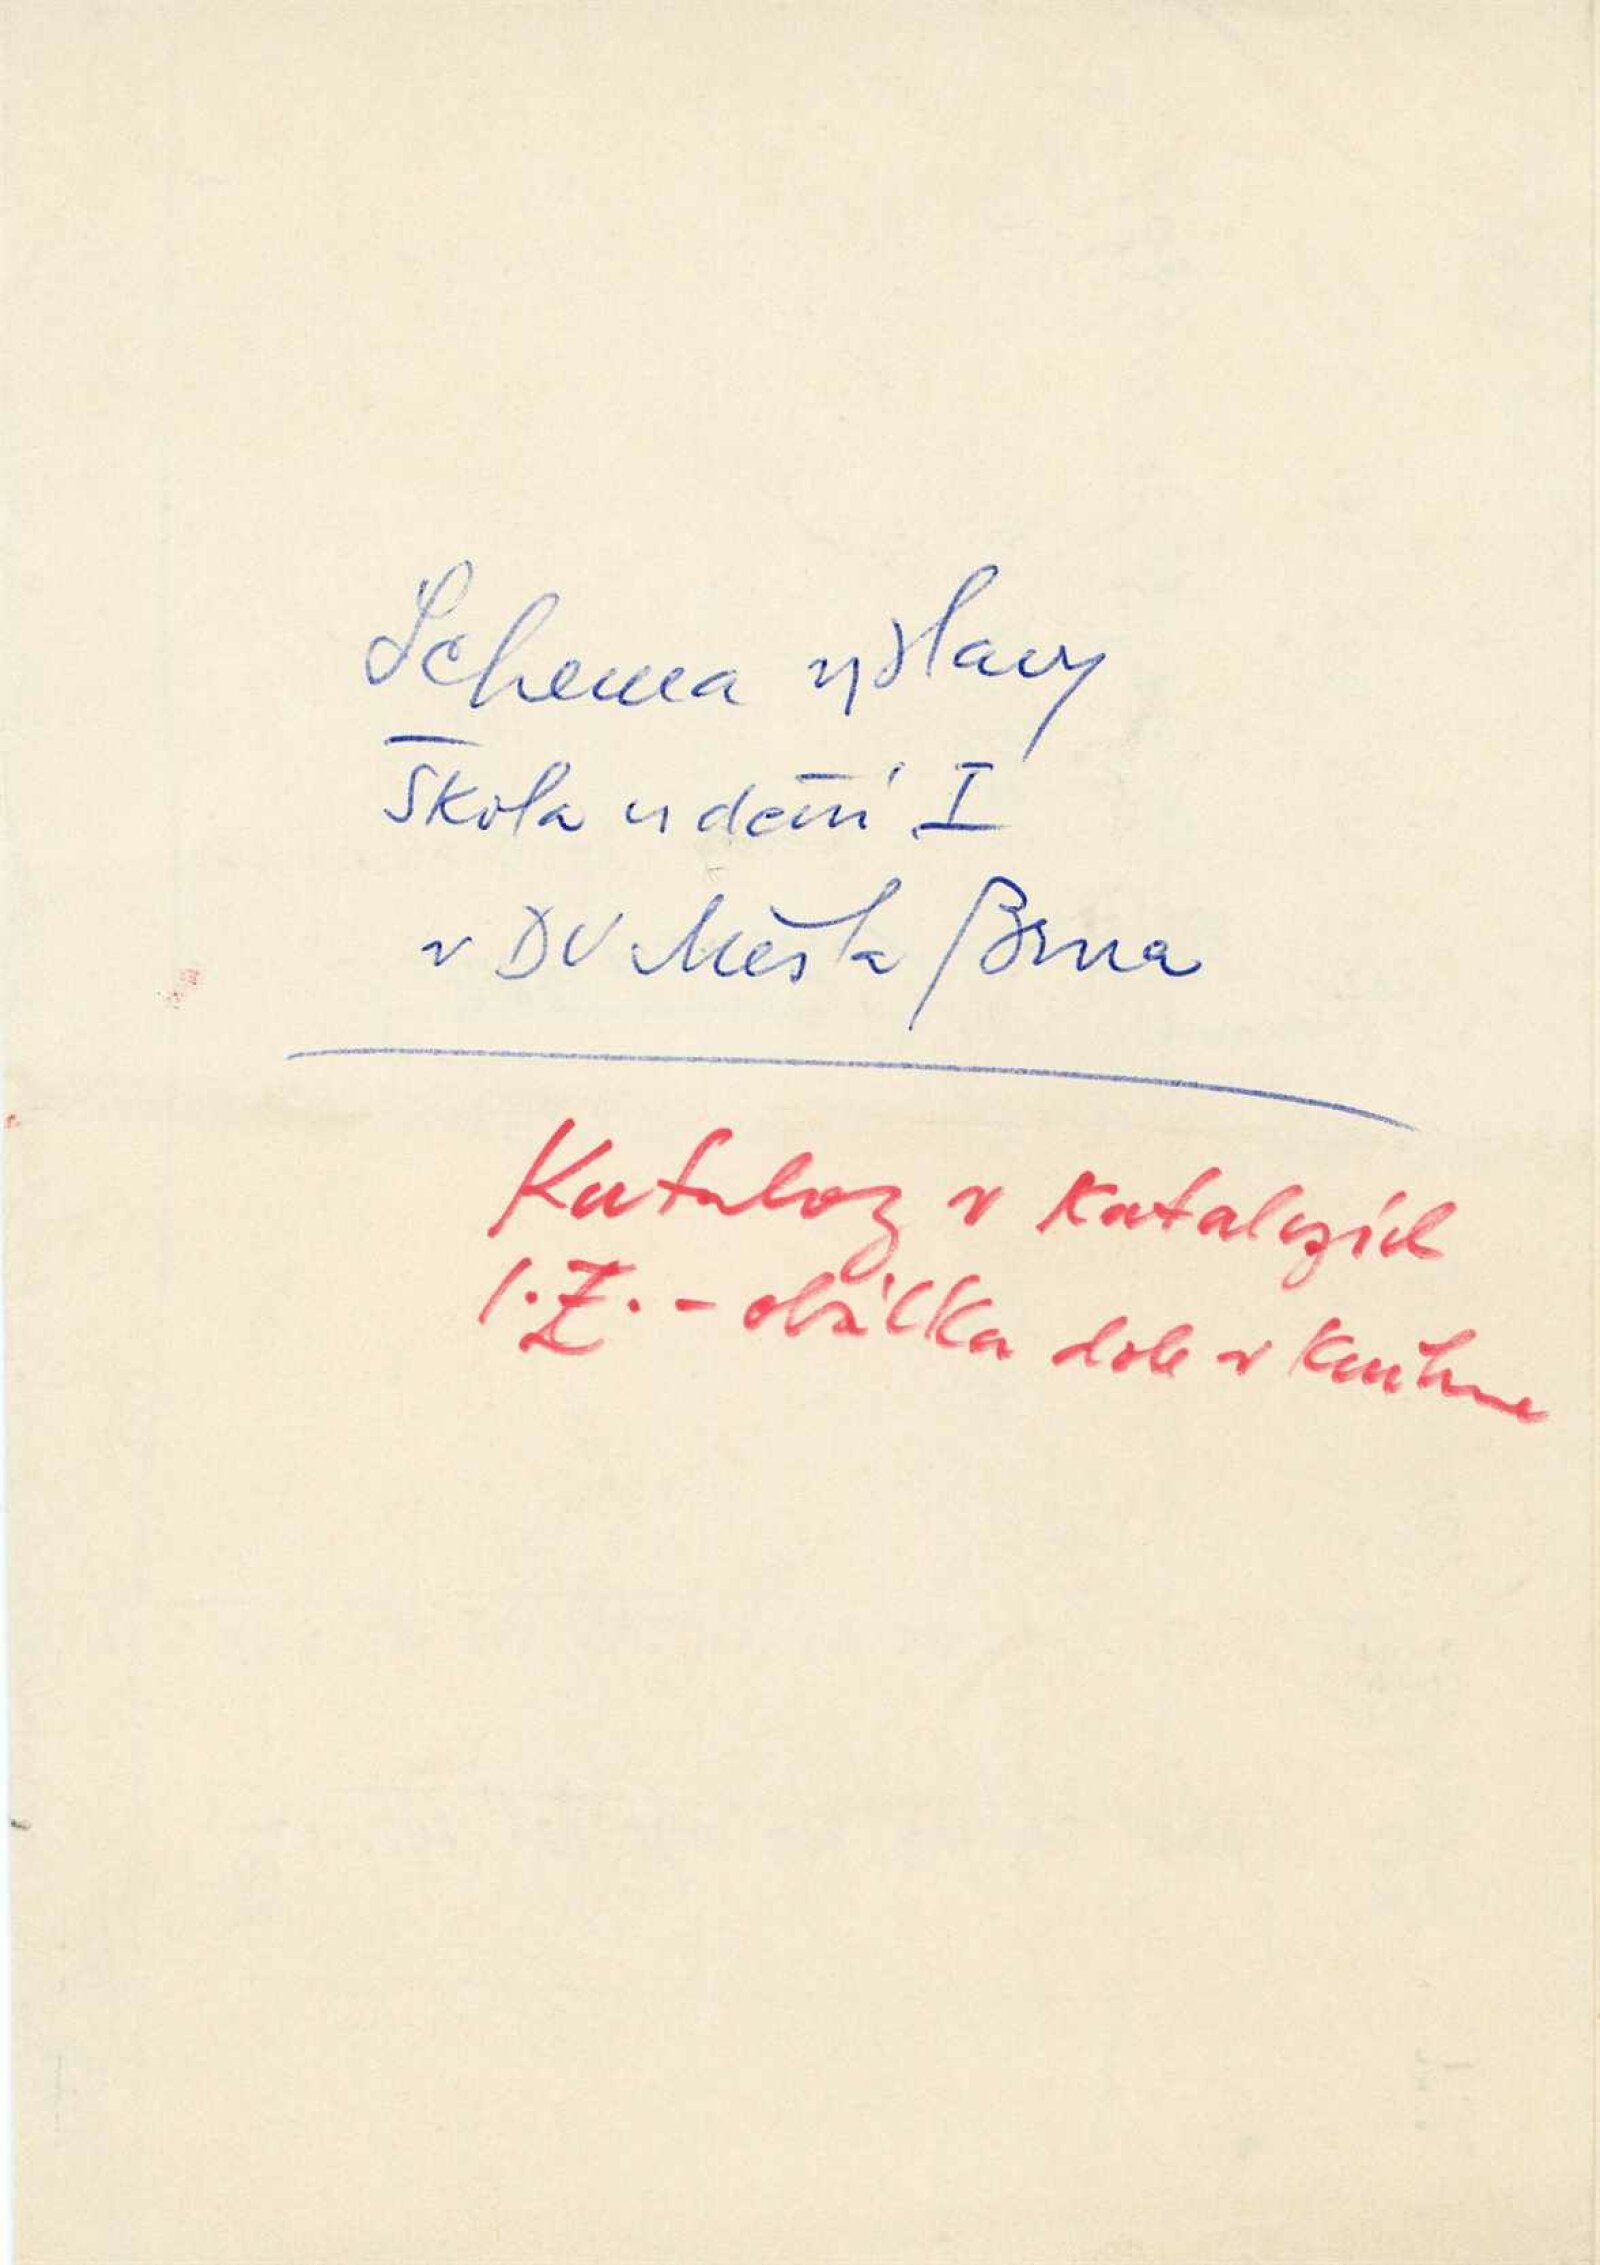 Schema výstavy
Škola vidění I
v DU Města Brna
Katalog v katalozích
I.Z. - obálka dole v knihovně